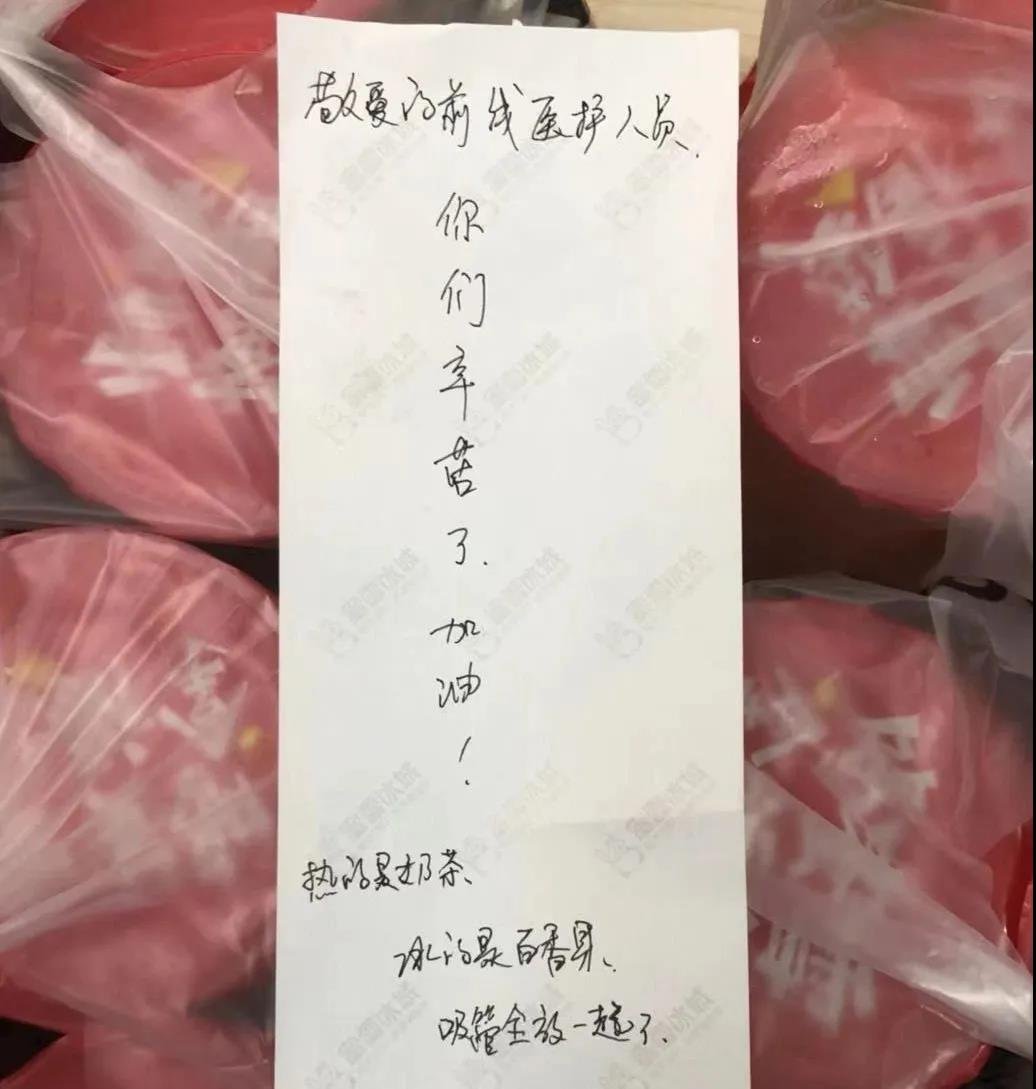 敬爱的前线医护人员.
你们辛苦了.加油！
热的是奶茶、
冰的是百香果、
吸管全放一起了.
蜜雪冰城